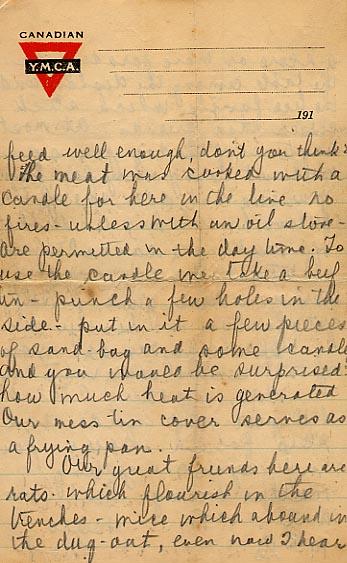 CANADIAN
Y.M.C.A.
191
feed well enough, don't you think?
The meat was cooked with a
candle for here in the line no
fires - unless with an oil stove -
are permitted in the day time. To
use the candle we take a beef
tin - punch a few holes in the
side - put in it a few pieces
of sand-bag and some candle
and you would be surprised
how much heat is generated
Our mess tin cover serves as
a frying pan.
Our great friends here are
rats - which flourish in the
trenches - mice which abound in
the dug-out, even now I hear